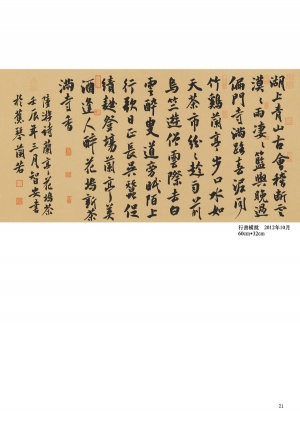 湖上青山古會稽斷雲
漠々雨淒々籃輿晚過
偏門寺滿路春泥聞
竹鷄蘭亭步口水如
天茶市紛々趁雨前
烏笠遊僧雲際去白
雲醉叟道旁眠陌上
行歌日正長吳蠶促
績麥登場蘭亭美
酒逢人醉花塢新茶
滿寺香
陸游詩蘭亭花塢茶
壬辰年三月智安書
於蕉琴蘭若
行書橫批 2012年10月
60cm*32cm
21